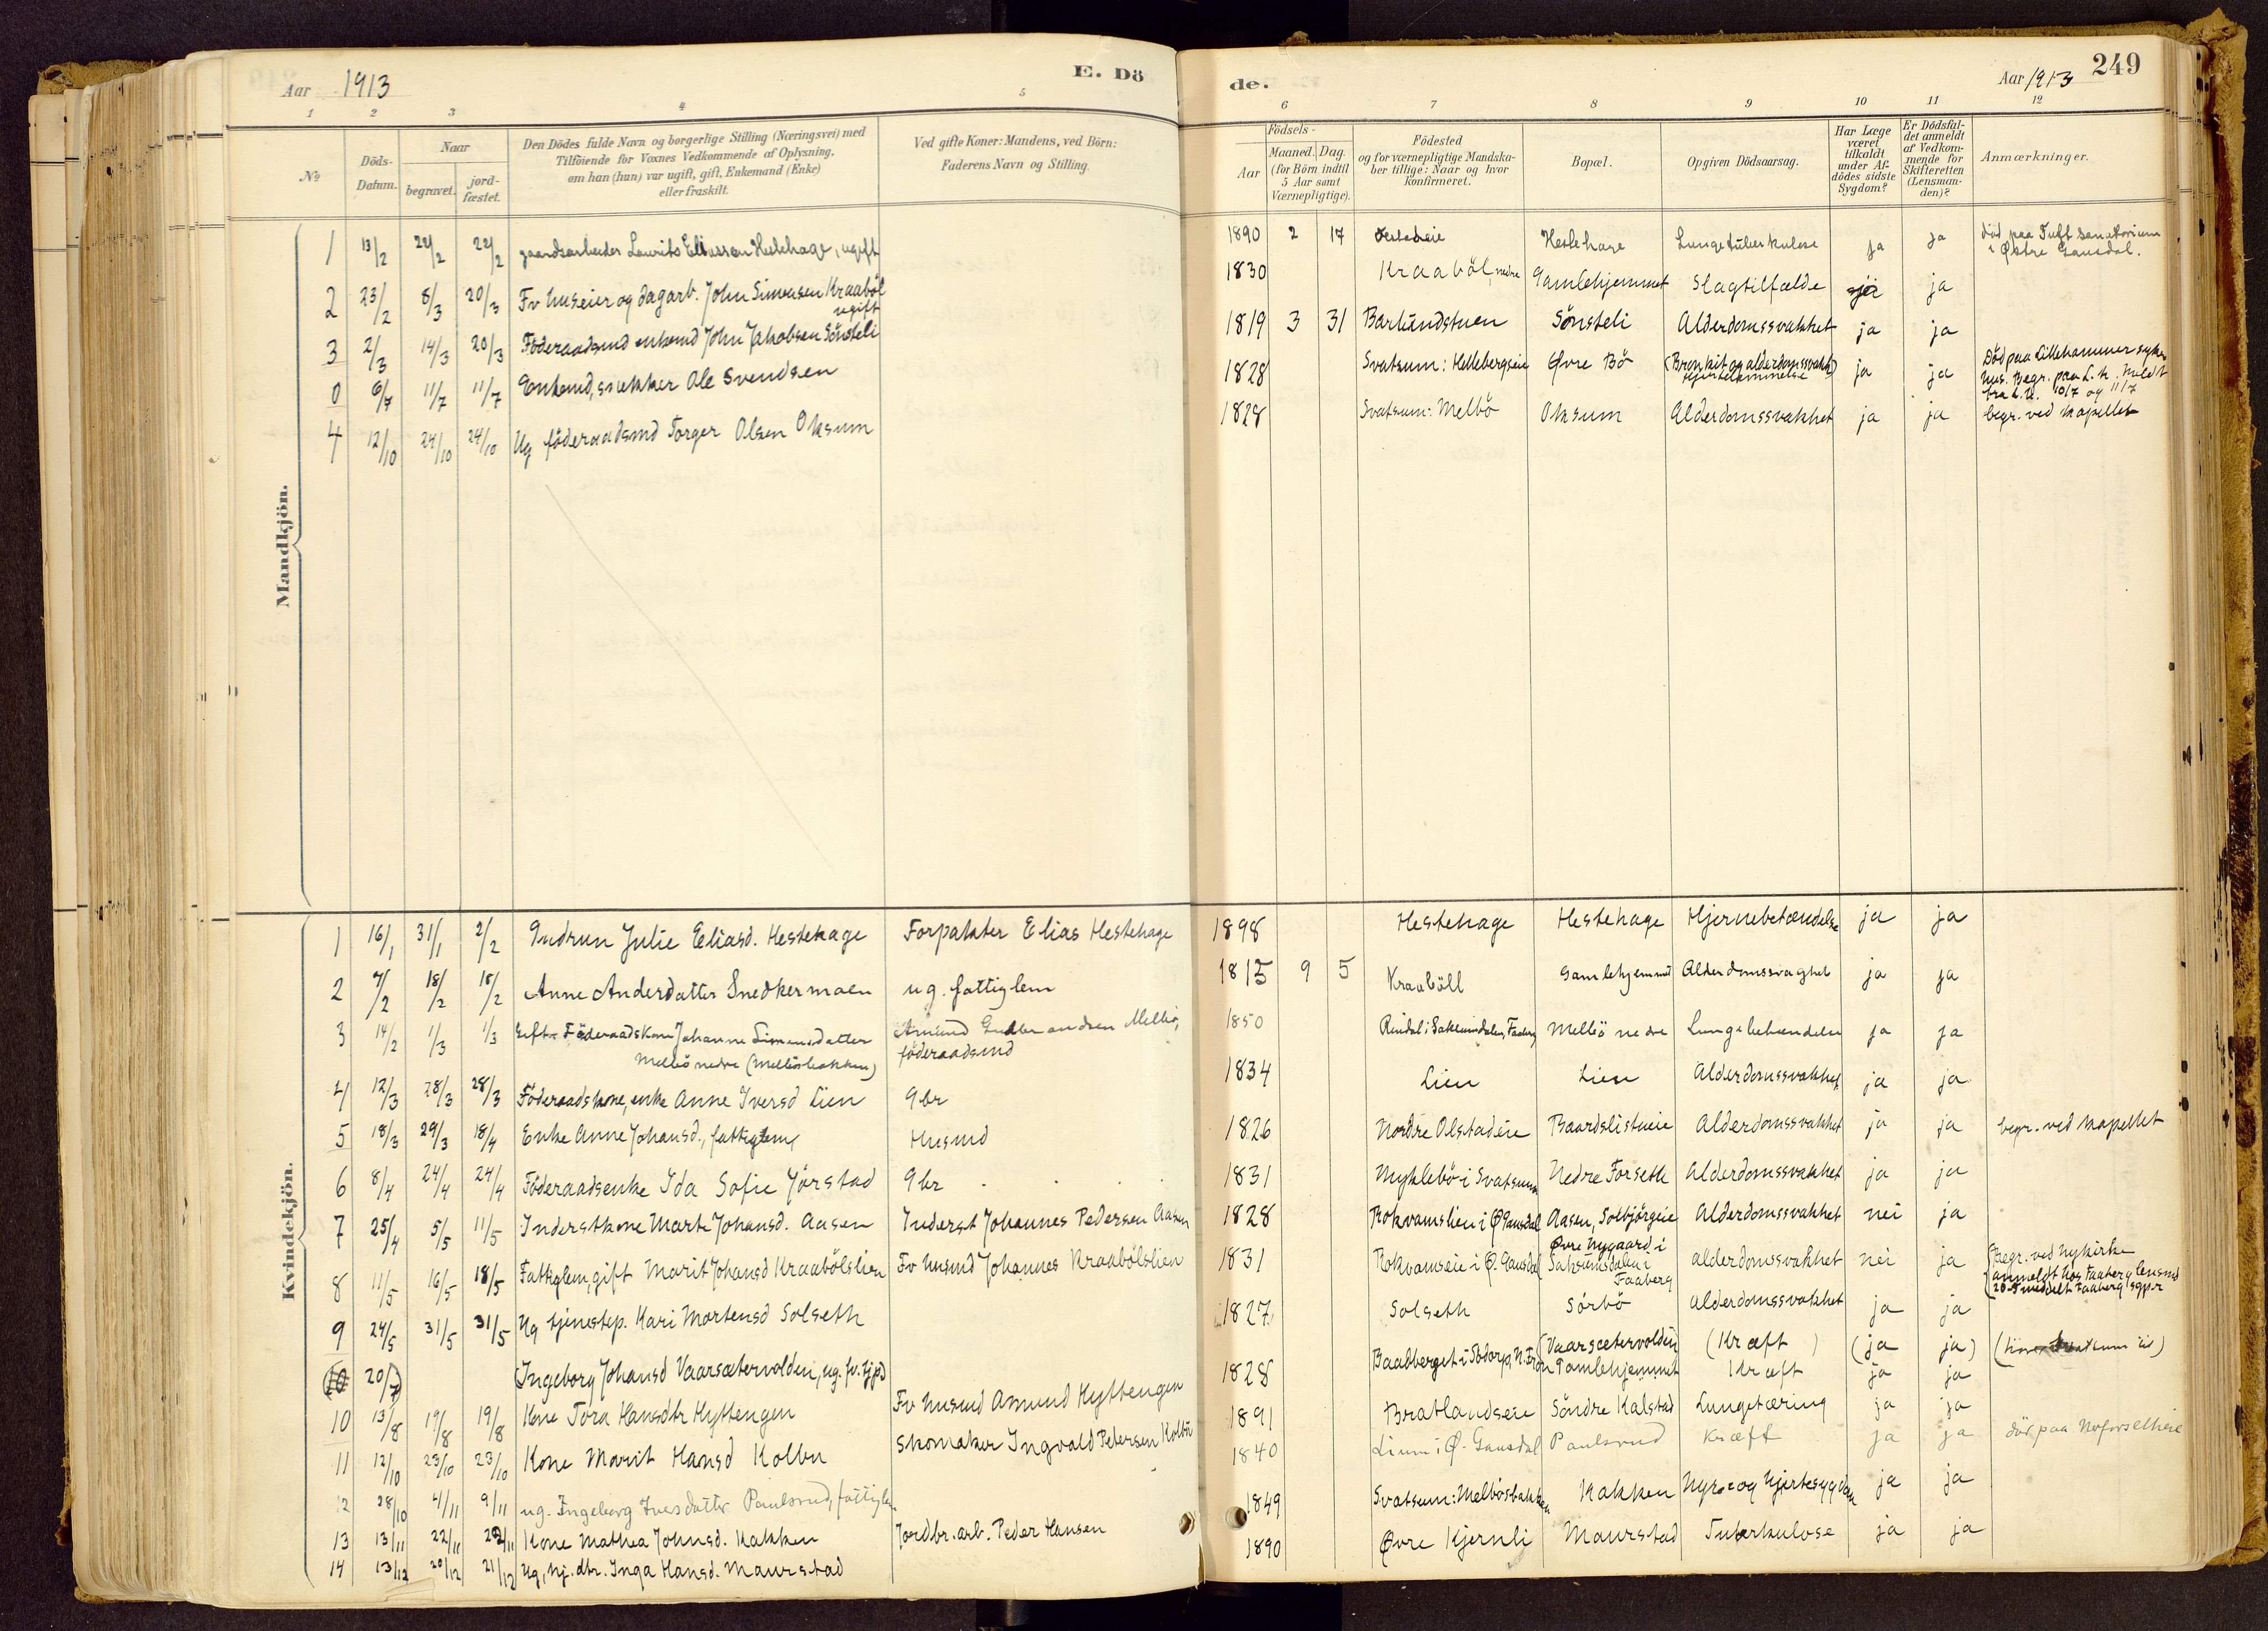 Aar 1913
E. Dö
de.
Aar 1913
249
1 2 3 4 5 6 7 8 9 10 11 12
No
Döds-Datum.
Naar
begravet.
jord-fæstet.
Den Dödes fulde Navn og borgerlige Stilling (Næringsvei) med
Tilföiende for Voxnes Vedkommende af Oplysning,
om han (hun) var ugift, gift, Enkemand (Enke)
eller fraskilt.
Ved gifte Koner: Mandens, ved Börn:
Faderens Navn og Stilling.
Födsels-
Aar
Maaned. Dag.
(for Börn indtil
5 Aar samt
Værnepligtige).
Födested
og for værnepligtige Mandska-
ber tillige: Naar og hvor
konfirmeret.
Bopæl.
Opgiven Dödsaarsag.
Har Læge
været
tilkaldt
under Af-
dödes sidste
Sygdom?
Er Dödsfal-
det anmeldt
af Vedkom-
mende for
Skifteretten
(Lensman-
den)?
Anmærkninger.
Mandkjön.
1 13/2 22/2 22/2 gaardsarbeider Laurits Eliassen Hestehage, ugift 1890 2 17 Hestehage Lungetuberkulose ja ja död paa Tuft sanatorium
i Østre Gausdal.
2 23/2 8/3 20/3 Fv huseier og dagarb. John Simensen Kraaböl
ugift 1830 Kraaböl nedre Gamlehjemmet Slagtilfælde ja ja
3 2/3 14/3 20/3 Föderaadsmd enkemd John Jakobsen Sönsteli 1819 3 31 Barlundstuen Sönsteli Alderdomssvakhet ja ja
0 6/7 11/7 11/7 Enkemd, snekker Ole Svendsen 1828 Svatsum: Hellebergseie Øvre Bö (Bronkit og alderdomssvakh)
Hjertelammelse ja ja Död paa Lillehammer syke
hus. Begr. paa L.h. Meldt
fra L.h. 10/7 og 11/7
4 12/10 24/10 24/10 Ug föderaadsmd Torger Olsen Oksum 1828 Svatsum: Melbö Oksum Alderdomssvakhet ja ja begr. ved kapellet
Kvindekjön.
1 16/1 31/1 2/2 Gudrun Julie Eliasd. Hestehage Forpakter Elias Hestehage 1898 Hestehage Hestehage Hjernebetændelse ja ja
2 7/2 18/2 18/2 Anne Andersdatter Snedkermoen ug. fattiglem 1815 9 5 Kraaböll Gamlehjemmet Alderdomssvaghet ja ja
3 14/2 1/3 1/3 Föderaadskone Johanne Simensdatter
Melbö nedre (Melbösbakken) Amund Gulbrandsen Melbö,
föderaadsmd 1850 Rindal i Saksumdalen, Faaberg Melbö nedre Lungebetændelse ja ja
4 12/3 28/3 28/3 Föderaadskone, enke Anne Iversd Lien Gbr 1834 Lien Lien Alderdomssvakhet ja ja
5 18/3 29/3 18/4 Enke Anne Johansd., fattiglem, Husmd 1826 Nordre Olstadeie Baardslistueie Alderdomssvakhet ja ja begr. ved kapellet
6 8/4 24/4 24/4 Föderaadsenke Ida Sofie Jörstad Gbr 1831 Myklebö i Svatsum Nedre Forseth Alderdomssvakhet ja ja
7 25/4 5/5 11/5 Inderstkone Marte Johansd. Aasen Inderst Johannes Pedersen Aasen 1828 Bokvamslien i Ø Gausdal Aasen, Solbjörgeie Alderdomssvakhet nei ja
8 11/5 16/5 18/5 Fattiglem, gift Marit Johansd Kraabölslien Fv husmd Johannes Kraabölslien 1831 Rokvamseie i Ø. Gausdal Øvre Nygaard i
Saksumsdalen i
Faaberg alderdomssvakhet nei ja Begr. ved Nykirke
anmeldt hos Faaberg lensmd
20-5 meddelt Faaberg sgpr
9 24/5 31/5 31/5 Ug tjenestep. Kari Mortensd Solseth 1827 Solseth Sörbö alderdomssvakhet ja ja
(10 20/7) (Ingeborg Johansd Vaarsætervolden, ug. fv. tjp) (Vaarsætervolden) (Kræft) (ja ja)
10 13/8 19/8 19/8 Kone Tora Hansdtr Hyttengen Fv husmd Amund Hyttengen 1828 Baadberget i Södorp, N. Fron Gamlehjemmet Kræft ja ja
11 12/10 23/10 23/10 Kone Marit Hansd Kolbu Skomaker Ingvald Petersen Kolbu 1891 Bratlandseie Söndre Kalstad Lungetæring ja ja
12 28/10 4/11 9/11 ug. Ingeborg Iversdatter Paulsrud, fattiglem 1840 Lium i Ø. Gausdal Paulsrud Kræft ja ja död paa Noforsetheie
13 13/11 22/11 22/11 Kone Mathea Johnsd. Kakken Jordbr. arb. Peder Hansen 1849 Svatsum: Melbösbakken Kakken Nyre og hjertesygdom ja ja
14 13/12 20/12 21/12 Ug, hj. dtr. Inga Hansd. Maurstad 1890 Øvre Kjernli Maurstad Tuberkulose ja ja